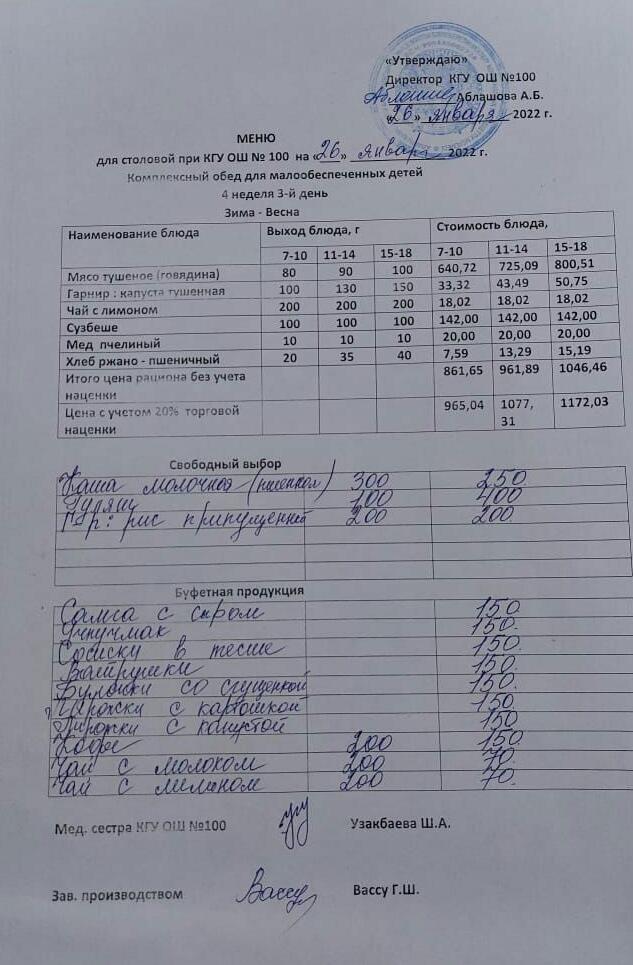 «Утверждаю»
Директор КГУ ОШ №100
Аблашова А.Б.
«26» января 2022 г.
МЕНЮ
для столовой при КГУ ОШ № 100 на «26» января 2022 г.
Комплексный обед для малообеспеченных детей
4 неделя 3-й день
Зима - Весна
Наименование блюда Выход блюда, г Стоимость блюда,
7-10 11-14 15-18 7-10 11-14 15-18
Мясо тушеное (говядина) 80 90 100 640,72 725,09 800,51
Гарнир : капуста тушенная 100 130 150 33,32 43,49 50,75
Чай с лимоном 200 200 200 18,02 18,02 18,02
Сузбеше 100 100 100 142,00 142,00 142,00
Мед пчелиный 10 10 10 20,00 20,00 20,00
Хлеб ржано - пшеничный 20 35 40 7,59 13,29 15,19
Итого цена рациона без учета 861,65 961,89 1046,46
наценки
Цена с учетом 20% торговой 965,04 1077, 1172,03
наценки 31
Свободный выбор
Каша молочная 300 250
Гуляш 100 400
Г-р: рис припущенный 200 200
Буфетная продукция
Самса с сыром 150
Учпучмак 150.
Сосиски в тесте 150.
Ватрушки 150.
Булочки со сгущенкой 150.
Пирожки с картошкой 150
Пирожки с капустой 150
Кофе 200 150.
Чай с молоком 200 70.
Чай с лимоном 200 70.
Мед. сестра КГУ ОШ №100 Узакбаева Ш.А.
Зав. производством Вассу Вассу Г.Ш.